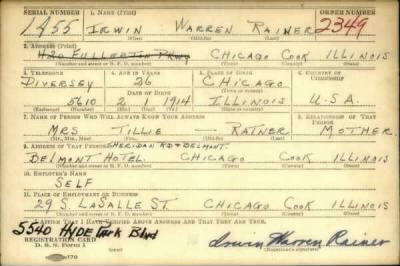 SERIAL NUMBER 1. NAME (Print) ORDER NUMBER
1455 IRWIN WARREN RAINER 2349
(First) (Middle) (Last)
2. ADDRESS (Print)
420 FULLERTON PKWY CHICAGO COOK ILLINOIS
(Number and street or R. F. D. number) (Town) (County) (State)
3. TELEPHONE 4. AGE IN YEARS 5. PLACE OF BIRTH 6. COUNTRY OF CITIZENSHIP
DIVERSEY 26 CHICAGO
DATE OF BIRTH (Town or county)
5610 2 1914 ILLINOIS U.S.A.
(Exchange) (Number) (Mo.) (Day) (Yr.) (State or country)
7. NAME OF PERSON WHO WILL ALWAYS KNOW YOUR ADDRESS 8. RELATIONSHIP OF THAT PERSON
MRS TILLIE — RAINER MOTHER
(Mr., Mrs., Miss) (First) (Middle) (Last)
9. ADDRESS OF THAT PERSON SHERIDAN RD & BELMONT.
BELMONT HOTEL. CHICAGO COOK ILLINOIS
(Number and street or R. F. D. number) (Town) (County) (State)
10. EMPLOYER'S NAME
SELF
11. PLACE OF EMPLOYMENT OR BUSINESS
29 S. LASALLE ST. CHICAGO COOK ILLINOIS
(Number and street or R. F. D. number) (Town) (County) (State)
I AFFIRM THAT I HAVE VERIFIED ABOVE ANSWERS AND THAT THEY ARE TRUE.
5540 HYDE PARK Blvd
REGISTRATION CARD
D. S. S. Form 1 Irwin Warren Rainer
(Registrant's signature)